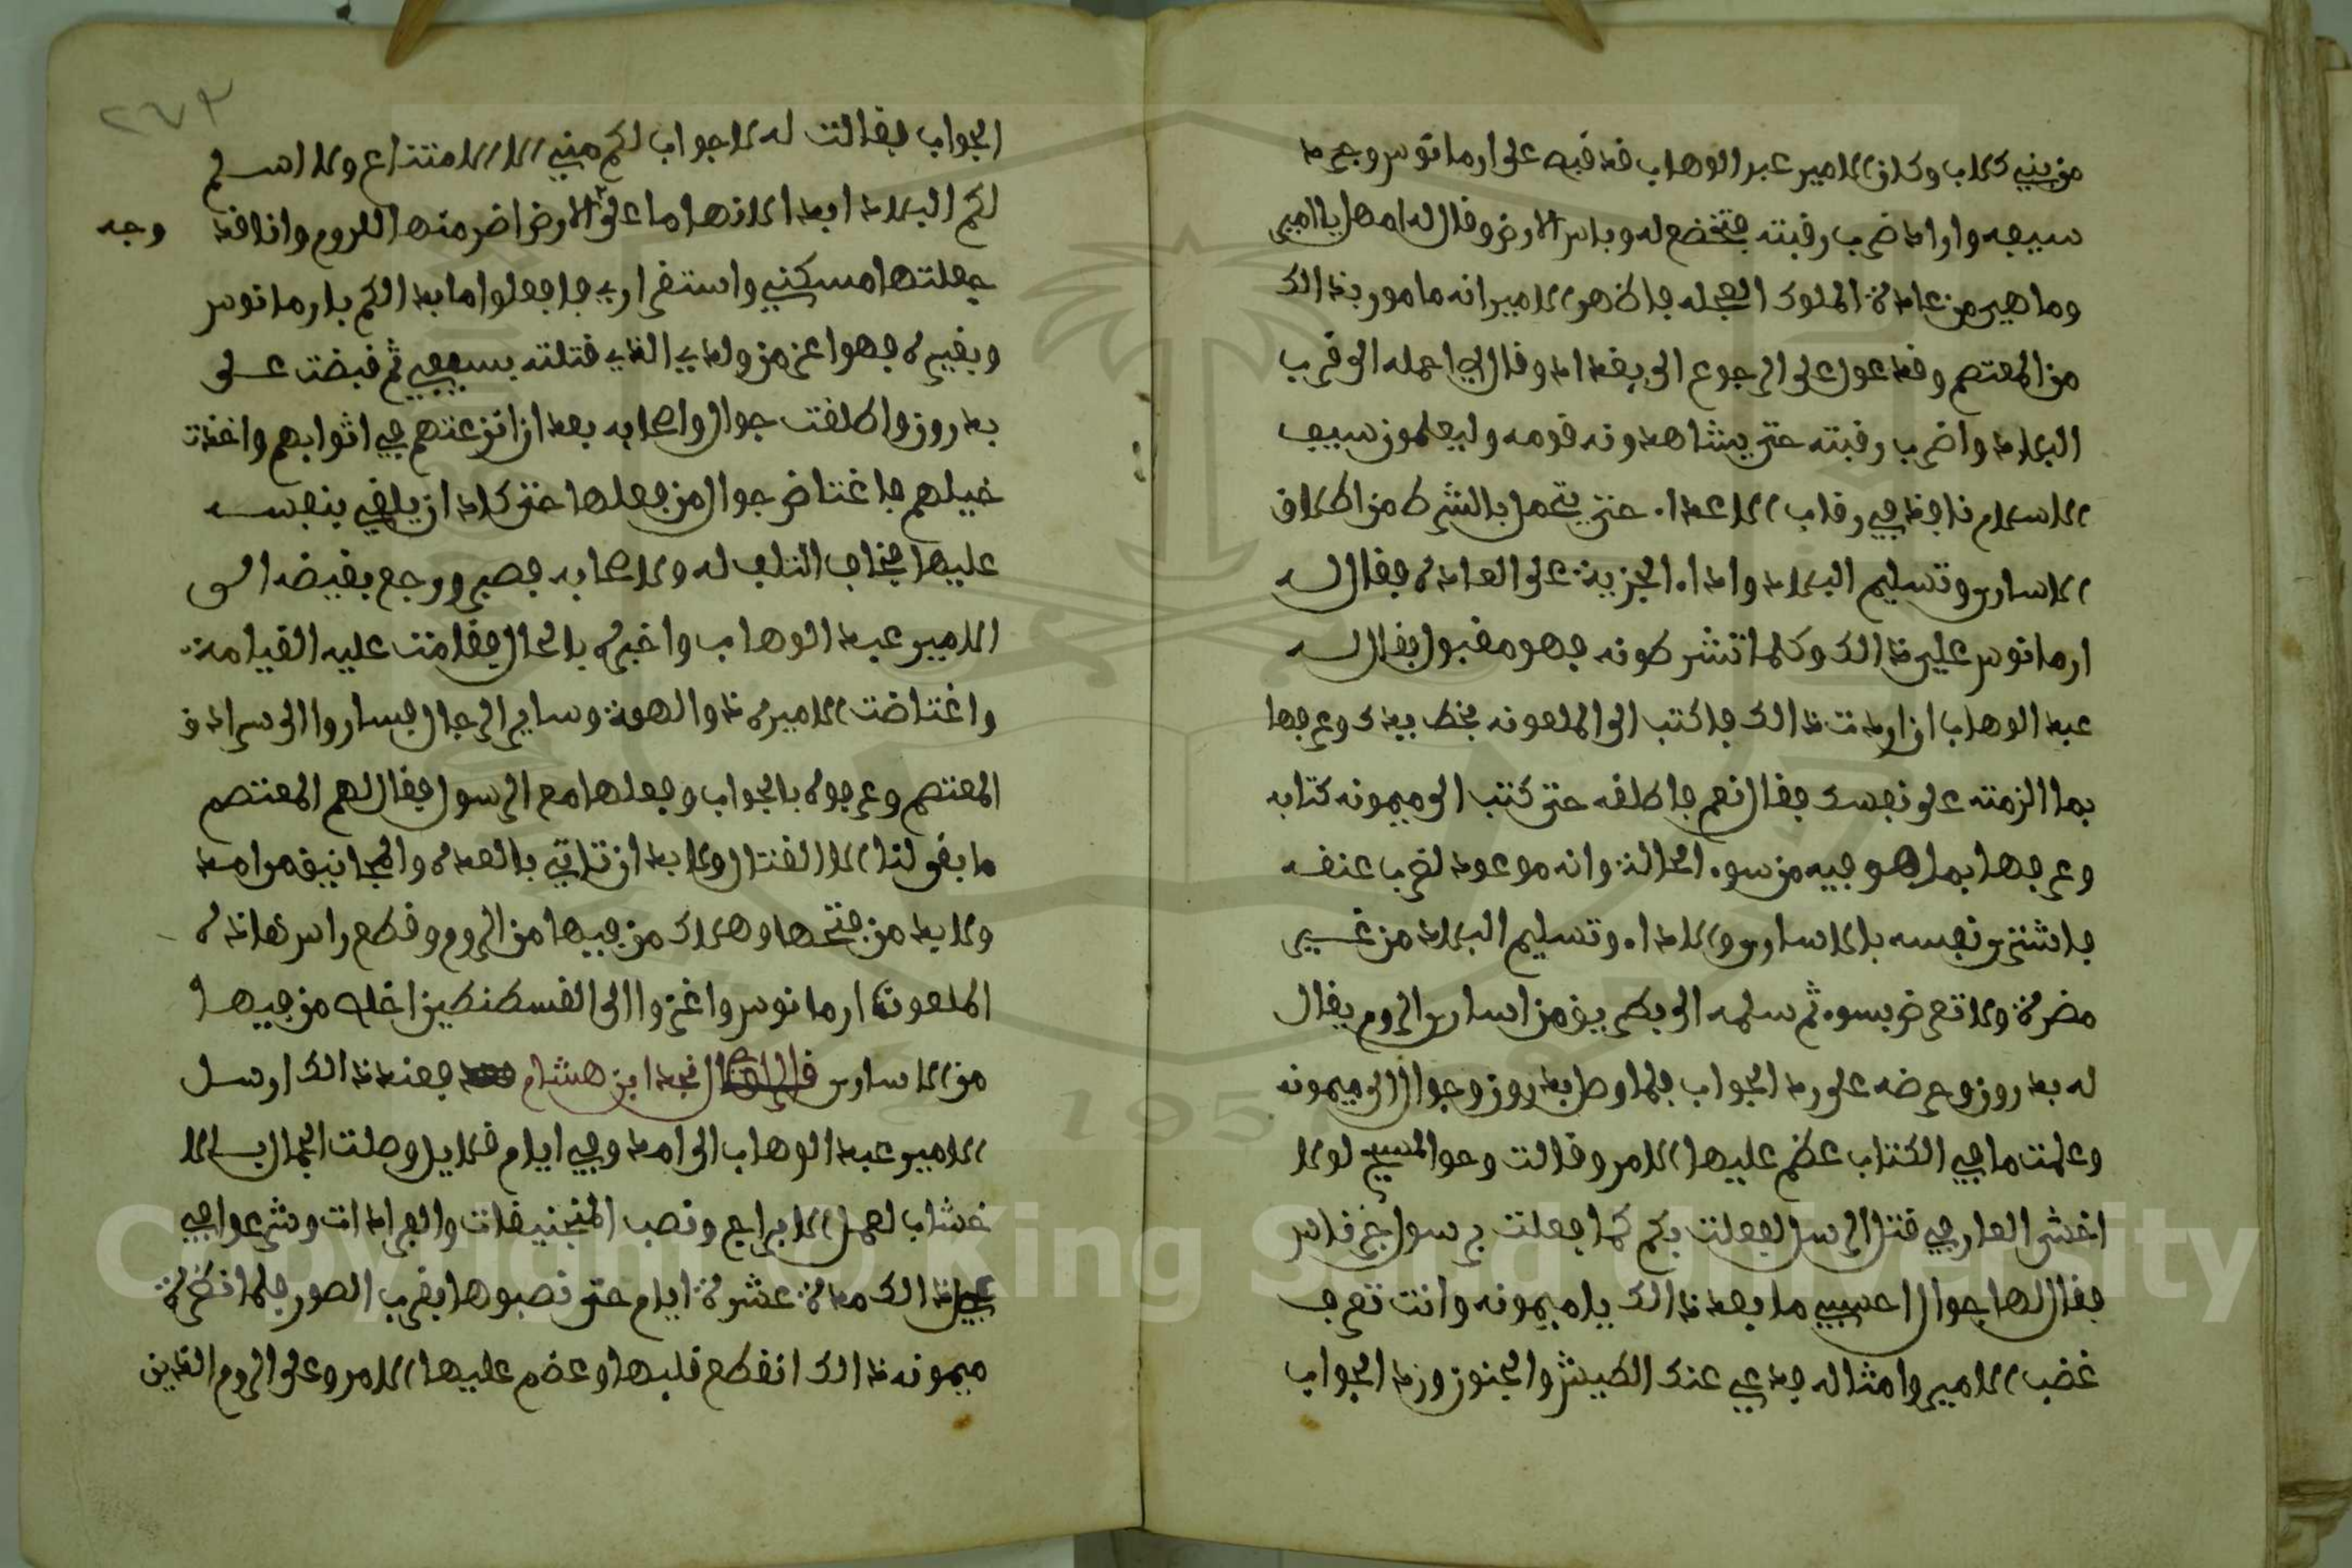 من بني كلاب وكان الامير عبد الوهاب قد قبض على ارمانوس وجرد
سيفه واراد ضرب رقبته فتخضع له وباس الارض وقال له امهل يا امير
وما هي من عادة الملوك العجله فاظهر الامير انه مامور بذالك
من المعتصم وقد عول على الرجوع الى بغداد وقال لي احمله الى قرب
البلاد واضرب رقبته حتى يشاهدونه قومه وليعلمون سيف
الاسلام نافذ في رقاب الاعدا حتى يتحمل بالشرط من اطلاق
الاسارى وتسليم البلاد واداء الجزية على العادة فقال له
ارمانوس علي ذالك وكلما تشرطونه فهو مقبول فقال له
عبد الوهاب ان اردت ذالك فاكتب الى الملعونه بخط يدك وعرفها
بما الزمته على نفسك فقال نعم فاطلقه حتى كتب الى ميمونه كتابه
وعرفها بما هو فيه من سوء الحالة وانه موعود لضرب عنقه
فاشترى نفسه بالاسارى والاداء وتسليم البلاد من غير
مضرة ولا تعرض بسوء ثم سلمه الى بطريق من اسارى الروم يقال
له بدرون وعرضه على رد الجواب فلما وصل بدرون وجوال الى ميمونه
وعلمت ما في الكتاب عظم عليها الامر وقالت وحق المسيح لولا
اخشى العار في قتل الرسل لفعلت بكم كما فعلت برسول خرقاس
فقال لها جوال احسبي ما بعد ذالك يا ميمونه وانت تعرف
غضب الامير وامثاله فدعي عنك الطيش والجنون وردا الجواب
٢٧٣
الجواب فقالت له لا جواب لكم مني الا الامتناع ولا اسلم
لكم البلاد ابدا لانها ما على الارض اضر منها للروم وانا قد وجه
جعلتها مسكني واستقراري فافعلوا ما بدالكم بارمانوس
وبغيره فهوا عز من ولدي الذي قتلته بسيفي ثم قبضت على
بدرون واطلقت جوال واصحابه بعد ان انزعتهم في اثوابهم واخذت
خيلهم فاغتاض جوال من فعلها حتى كاد ان يلقي بنفسه
عليها فخاف التلف له ولاصحابه فصبر ورجع بقيضه الى
الامير عبد الوهاب واخبره بالحال فقامت عليه القيامة
واغتاضت الاميره ذوالهمة وساير الرجال فساروا الى سرادق
المعتصم وعرفوه بالجواب وفعلها مع الرسول فقال لهم المعتصم
ما بقى لنا الا القتال ولابد ان تاتي بالعدة والمجانيق من امد
ولابد من فتحها وهلاك من فيها من الروم وقطع راس هاذه
الملعونة ارمانوس واغزوا الى القسطنطين اخلص من فيها
من الاسارى قال نجد ابن هشام فعند ذالك ارسل
الامير عبد الوهاب الى امد وفي ايام قلايل وصلت الجمال بالا
خشاب لعمل الابراج ونصب المنجنيقات والعرادات وشرعوا في
عمل ذالك مدة عشرة ايام حتى نصبوها بقرب الصور فلما نظرة
ميمونه ذالك انقطع قلبها وعضم عليها الامر وعلى الروم الذين